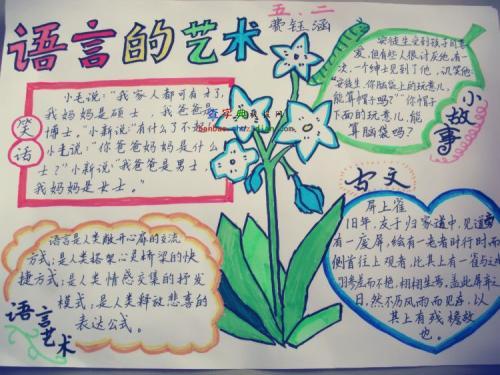 语言的艺术
五、二
费钰涵
笑话
小毛说:“我家人都可有才了,
我妈妈是硕士,我爸爸是
博士。”小新说:“有什么了不起
小毛说:“你爸爸妈妈是什么
士?”小新说:“我爸爸是男士,
我妈妈是女士。”
安徒生受到孩子的喜
爱,但有些人很讨厌他,有
一次,一个绅士见到了他,讥笑他:
“安徒生,你脑袋上的玩意儿,
能算帽子吗?”“你帽子
下面的玩意儿,能
算脑袋吗?
小故事
语言是人类敞开心扉的交流
方式;是人类搭架心是桥梁的快
捷方式;是人类情感交集的抒发
模式;是人类释放悲喜的
表达公式。
语言艺术
古文
屏上雀
旧年,友于归家道中,见道旁
有一废屏,绘有一老者时行时雨
侧首往上观者,比其上有一雀与之
羽参差而不艳,栩栩生焉,盖此屏弃之
日,然不历风雨而见存,以
其上有残檐故
也。